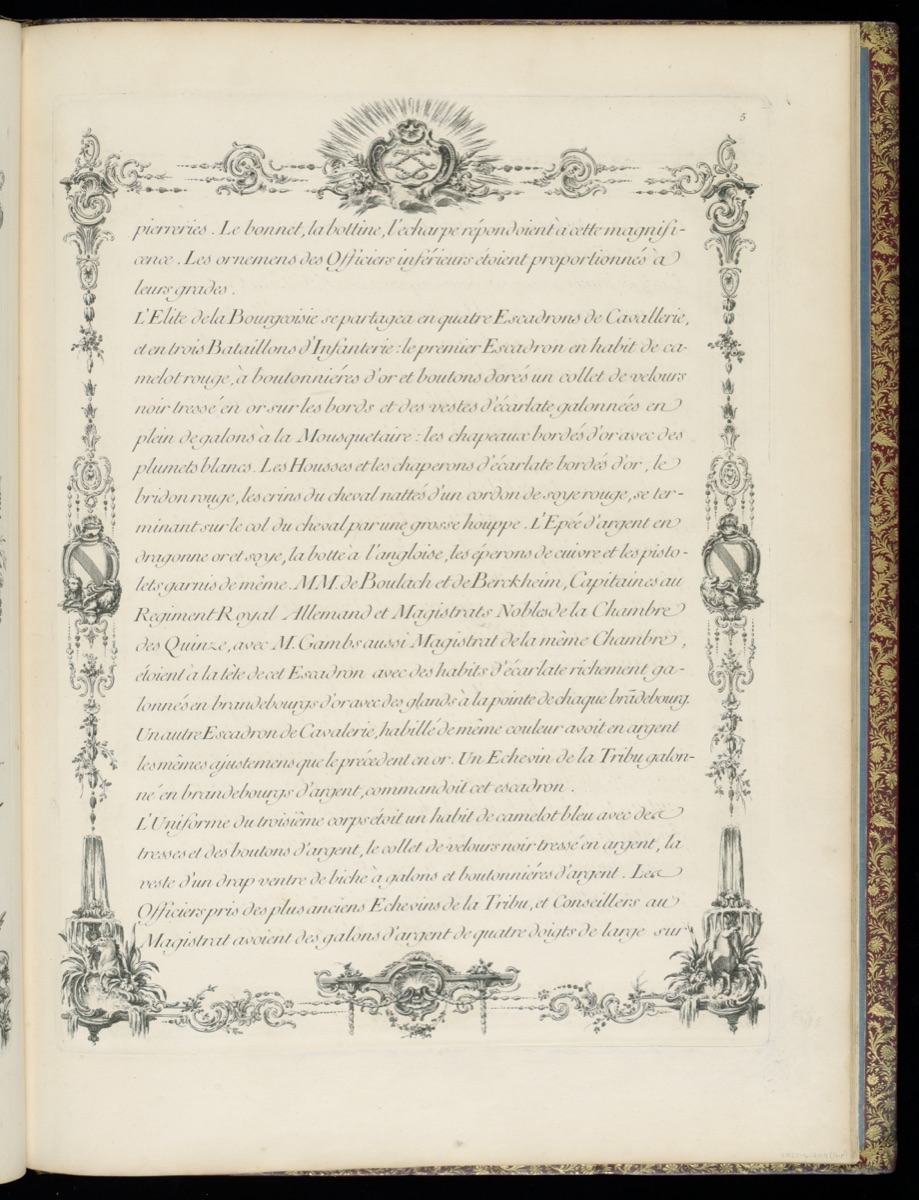 5
pierreries. Le bonnet, la bottine, l'echarpe répondoient à cette magnifi-
cence. Les ornemens des Officiers inférieurs étoient proportionnés à
leurs grades.
L'Elite de la Bourgeoisie se partagea en quatre Escadrons de Cavallerie,
et en trois Bataillons d'Infanterie: le premier Escadron en habit de ca-
melot rouge, à boutonniéres d'or et boutons dorés un collet de velours
noir tressé en or sur les bords et des vestes d'écarlate galonnées en
plein de galons à la Mousquetaire: les chapeaux bordés d'or avec des
plumets blancs. Les Housses et les chaperons d'écarlate bordés d'or, le
bridon rouge, les crins du cheval nattés d'un cordon de soye rouge, se ter-
minant sur le col du cheval par une grosse houppe. L'Epée d'argent en
dragonne or et soye, la botte à l'angloise, les éperons de cuivre et les pisto-
lets garnis de même. MM. de Boulach et de Berckheim, Capitaines au
Regiment Royal Allemand et Magistrats Nobles de la Chambre
des Quinze, avec M. Gambs aussi Magistrat de la même Chambre,
étoient à la tête de cet Escadron avec des habits d'écarlate richement ga-
lonnés en brandebourgs d'or avec des glands à la pointe de chaque brãdebourg.
Un autre Escadron de Cavalerie, habillé de même couleur avoit en argent
les mêmes ajustemens que le précedent en or. Un Echevin de la Tribu galon-
né en brandebourgs d'argent, commandoit cet escadron.
L'Uniforme du troisième corps étoit un habit de camelot bleu avec des
tresses et des boutons d'argent, le collet de velours noir tressé en argent, la
veste d'un drap ventre de biche à galons et boutonniéres d'argent. Les
Officiers pris des plus anciens Echevins de la Tribu, et Conseillers au
Magistrat avoient des galons d'argent de quatre doigts de large sur